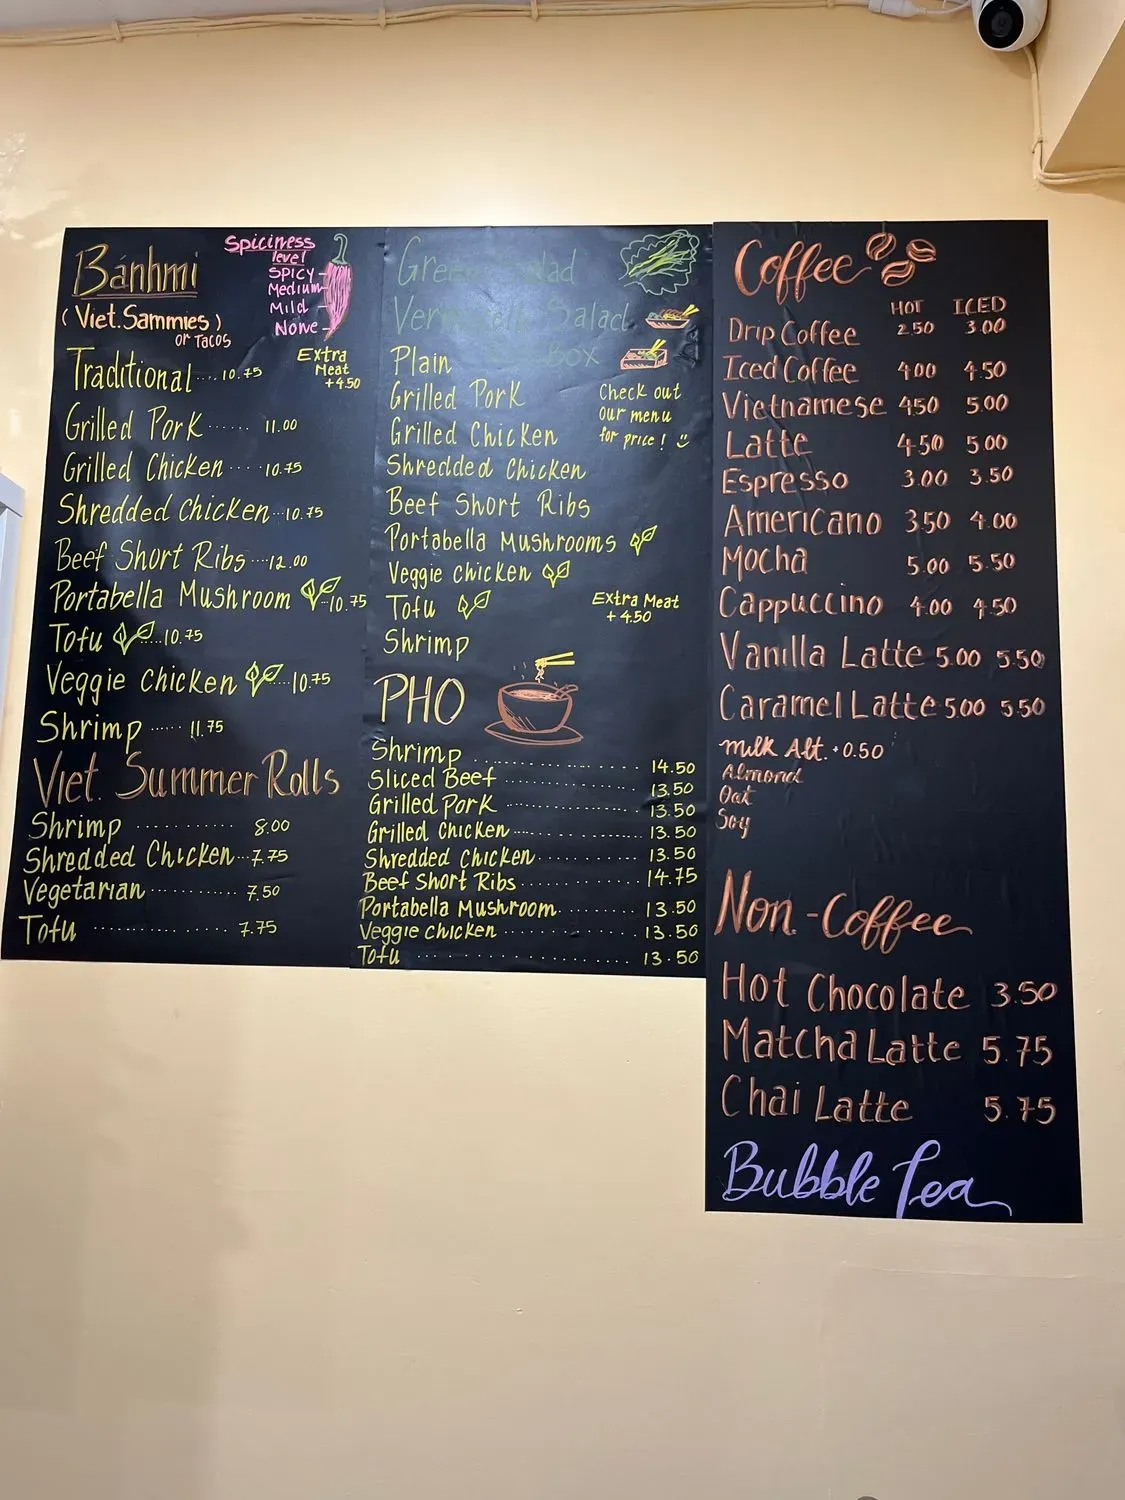 Bánhmi
(Viet. Sammies)
or Tacos
Spiciness
level
Spicy
Medium
Mild
None
Extra
Meat
+4.50
Traditional....10.75
Grilled Pork...... 11.00
Grilled Chicken.....10.75
Shredded Chicken..10.75
Beef Short Ribs....12.00
Portabella Mushroom ..10.75
Tofu ...10.75
Veggie chicken ....10.75
Shrimp...... 11.75
Viet. Summer Rolls
Shrimp ........... 8.00
Shredded Chicken...7.75
Vegetarian............ 7.50
Tofu ................. 7.75
Green Salad
Vermicelli Salad
Box
Plain
Grilled Pork
Grilled Chicken
Shredded Chicken
Beef Short Ribs
Portabella Mushrooms
Veggie chicken
Tofu
Shrimp
Check out
our menu
for price! :)
Extra Meat
+4.50
PHO
Shrimp ..................... 14.50
Sliced Beef ................. 13.50
Grilled Pork ................. 13.50
Grilled Chicken.................. 13.50
Shredded Chicken............. 13.50
Beef Short Ribs............... 14.75
Portabella Mushroom.......... 13.50
Veggie chicken ................ 13.50
Tofu ......................... 13.50
Coffee
HOT ICED
Drip Coffee 2.50 3.00
Iced Coffee 4.00 4.50
Vietnamese 4.50 5.00
Latte 4.50 5.00
Espresso 3.00 3.50
Americano 3.50 4.00
Mocha 5.00 5.50
Cappuccino 4.00 4.50
Vanilla Latte 5.00 5.50
Caramel Latte 5.00 5.50
milk Alt. +0.50
Almond
Oat
Soy
Non-Coffee
Hot Chocolate 3.50
Matcha Latte 5.75
Chai Latte 5.75
Bubble Tea